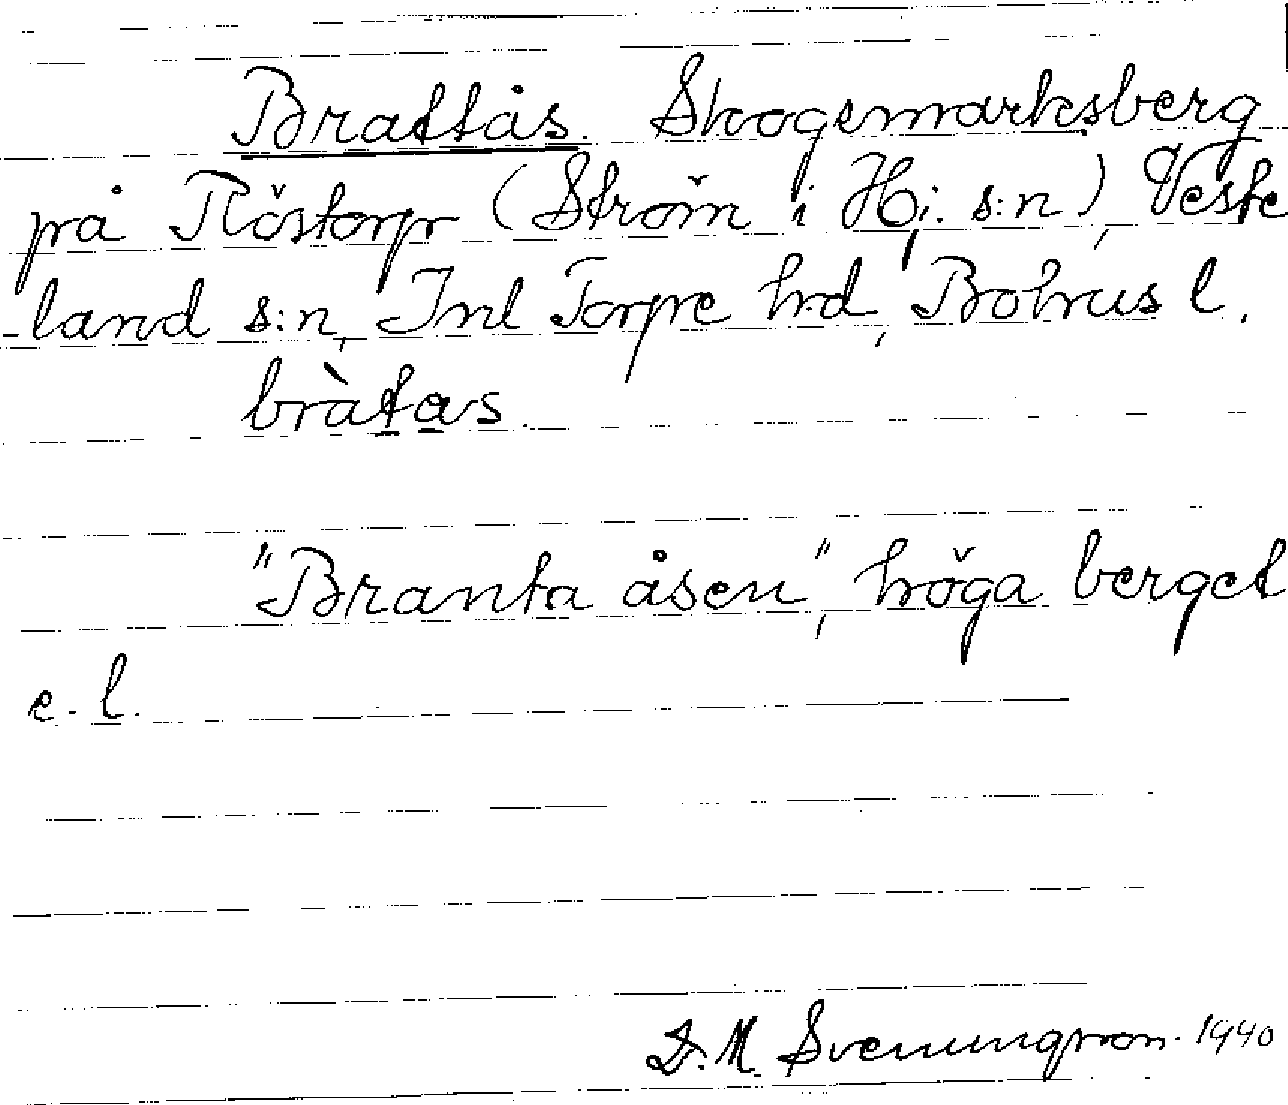 Brattås. Skogsmarksberg
på Röstorp (Ström i Hj. s:n), Veste
-land s:n, Inl Torpe h:d, Bohus l.
bràtas.
"Branta åsen", höga berget
e. l.
D. M. Svenungsson. 1940